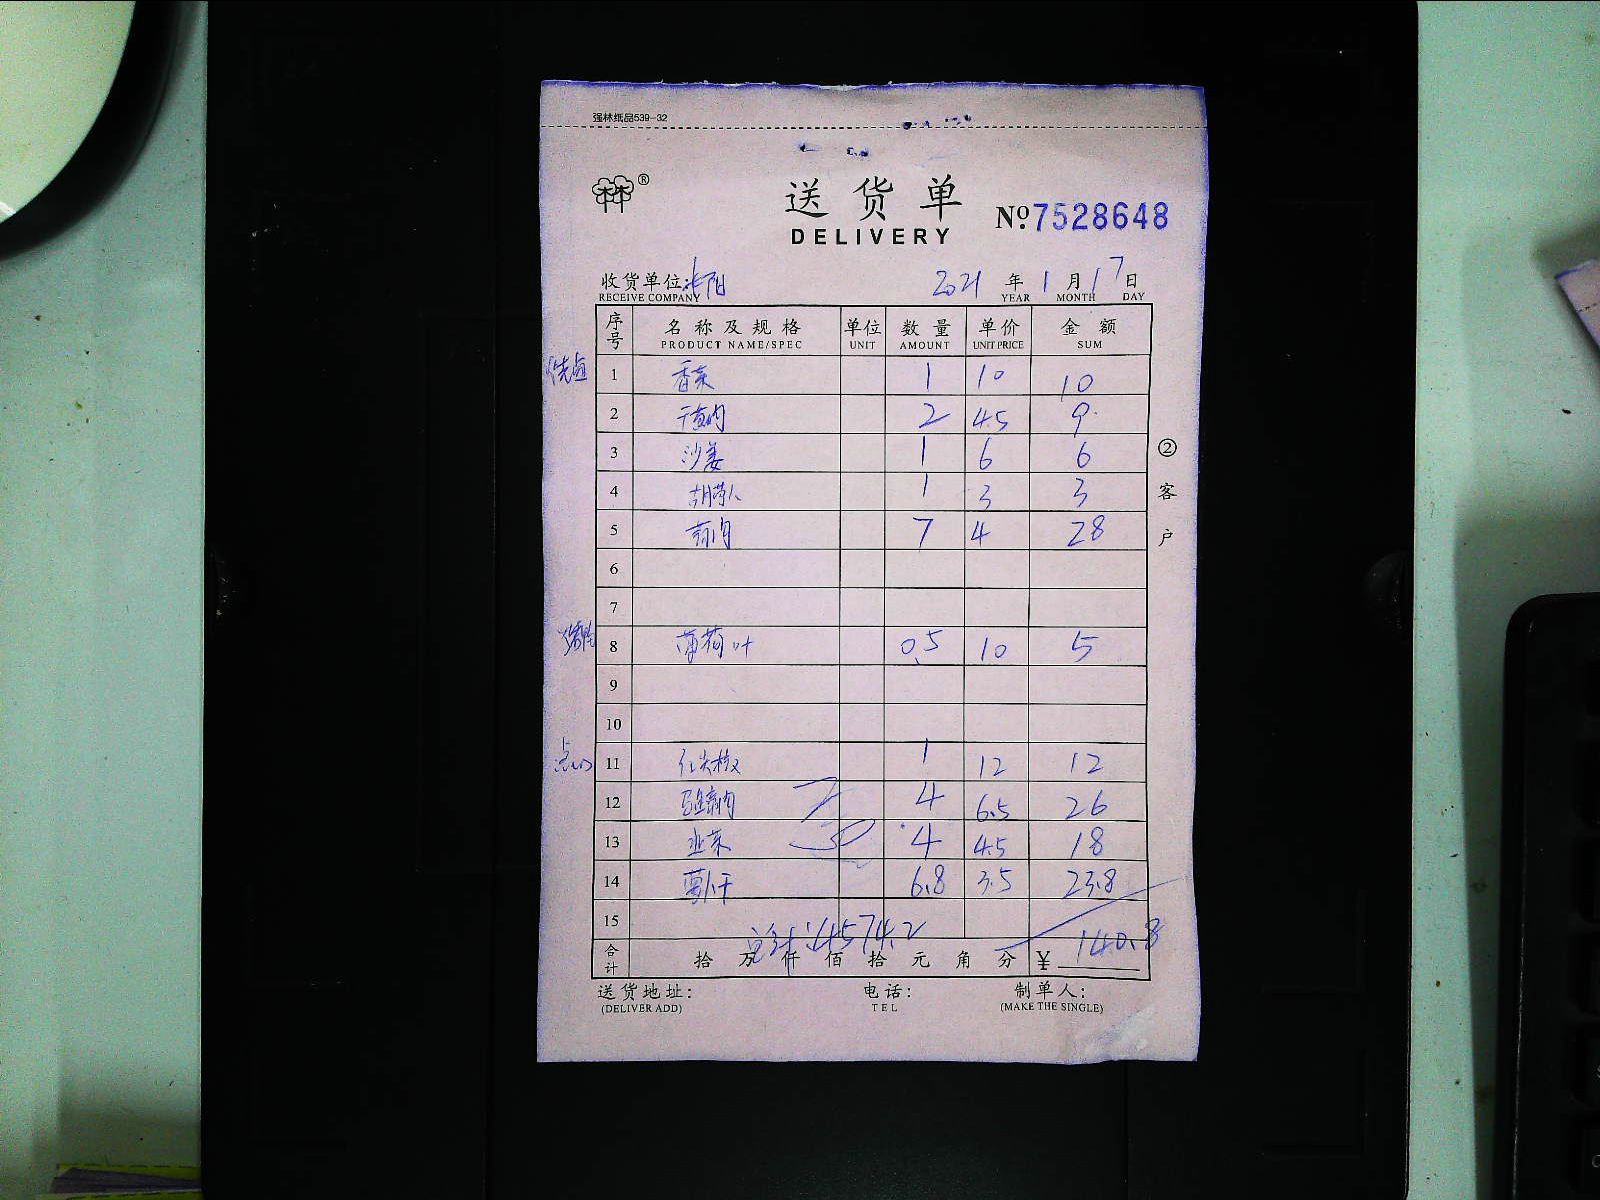 强林纸品539-32
林林®
送货单
No.7528648
DELIVERY
收货单位: 2021年1月17日
RECEIVE COMPANY YEAR MONTH DAY
序号 名称及规格 单位 数量 单价 金额
PRODUCT NAME/SPEC UNIT AMOUNT UNIT PRICE SUM
1 香菜 1 10 10
2 2 4.5 9
3 沙姜 1 6 6
4 1 3 3
5 7 4 28
6
7
8 薄荷叶 0.5 10 5
9
10
点心 11 红尖椒 1 12 12
12 4 6.5 26
13 韭菜 4 4.5 18
14 萝卜干 6.8 3.5 23.8
15
总计:4574.2
合计 拾万仟佰拾元角分 ¥140.8
送货地址: 电话: 制单人:
(DELIVER ADD) TEL (MAKE THE SINGLE)
②客户